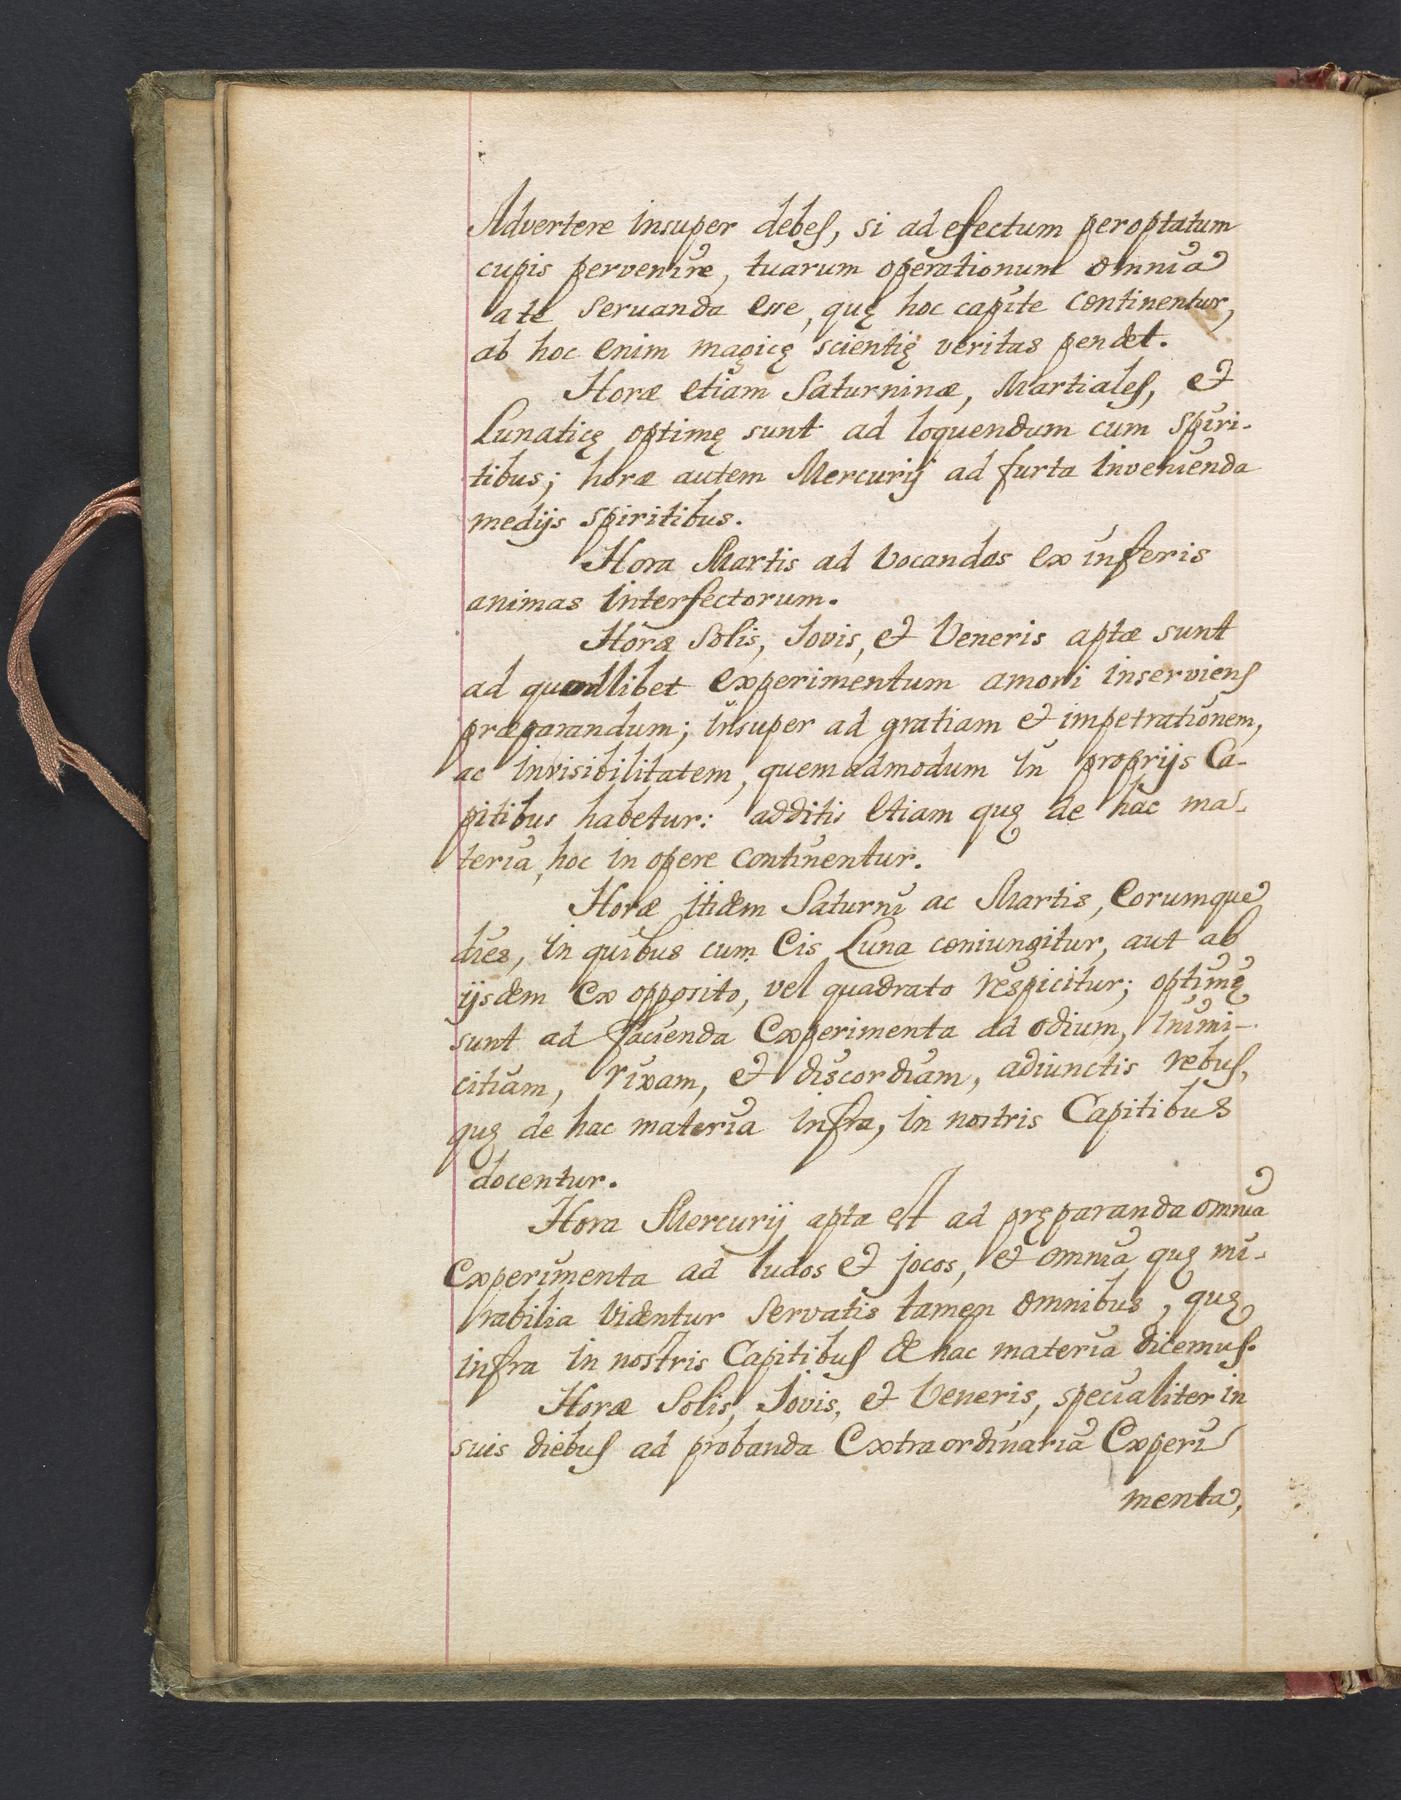 Advertere insuper debes, si ad efectum peroptatum
cupis pervenire, tuarum operationum omnia
a te servanda esse, quę hoc capite continentur,
ab hoc enim magicę scientię veritas pendet.
Horæ etiam Saturninæ, Martiales, et
Lunaticę optimę sunt ad loquendum cum spiri-
tibus; horæ autem Mercurij ad furta invenienda
medijs spiritibus.
Hora Martis ad vocandas ex inferis
animas interfectorum.
Horæ Solis, Jovis, et Veneris aptæ sunt
ad quodlibet experimentum amori inserviens
præparandum; insuper ad gratiam et impetrationem,
ac invisibilitatem, quemadmodum in proprijs Ca-
pitibus habetur: additis etiam quę de hac ma-
teria, hoc in opere continentur.
Horæ itidem Saturni ac Martis, eorumque
dies, in quibus cum eis Luna coniungitur, aut ab
ijsdem ex opposito, vel quadrato respicitur; optimę
sunt ad facienda experimenta ad odium, inimi-
citiam, rixam, et discordiam, adiunctis rebus,
quę de hac materia infra, in nostris Capitibus
docentur.
Hora Mercurij apta est ad pręparanda omnia
experimenta ad ludos et jocos, et omnia quę mi-
rabilia videntur servatis tamen omnibus, quę
infra in nostris Capitibus de hac materia dicemus.
Horæ Solis, Jovis, et Veneris, specialiter in
suis diebus ad probanda extraordinaria experi
menta,